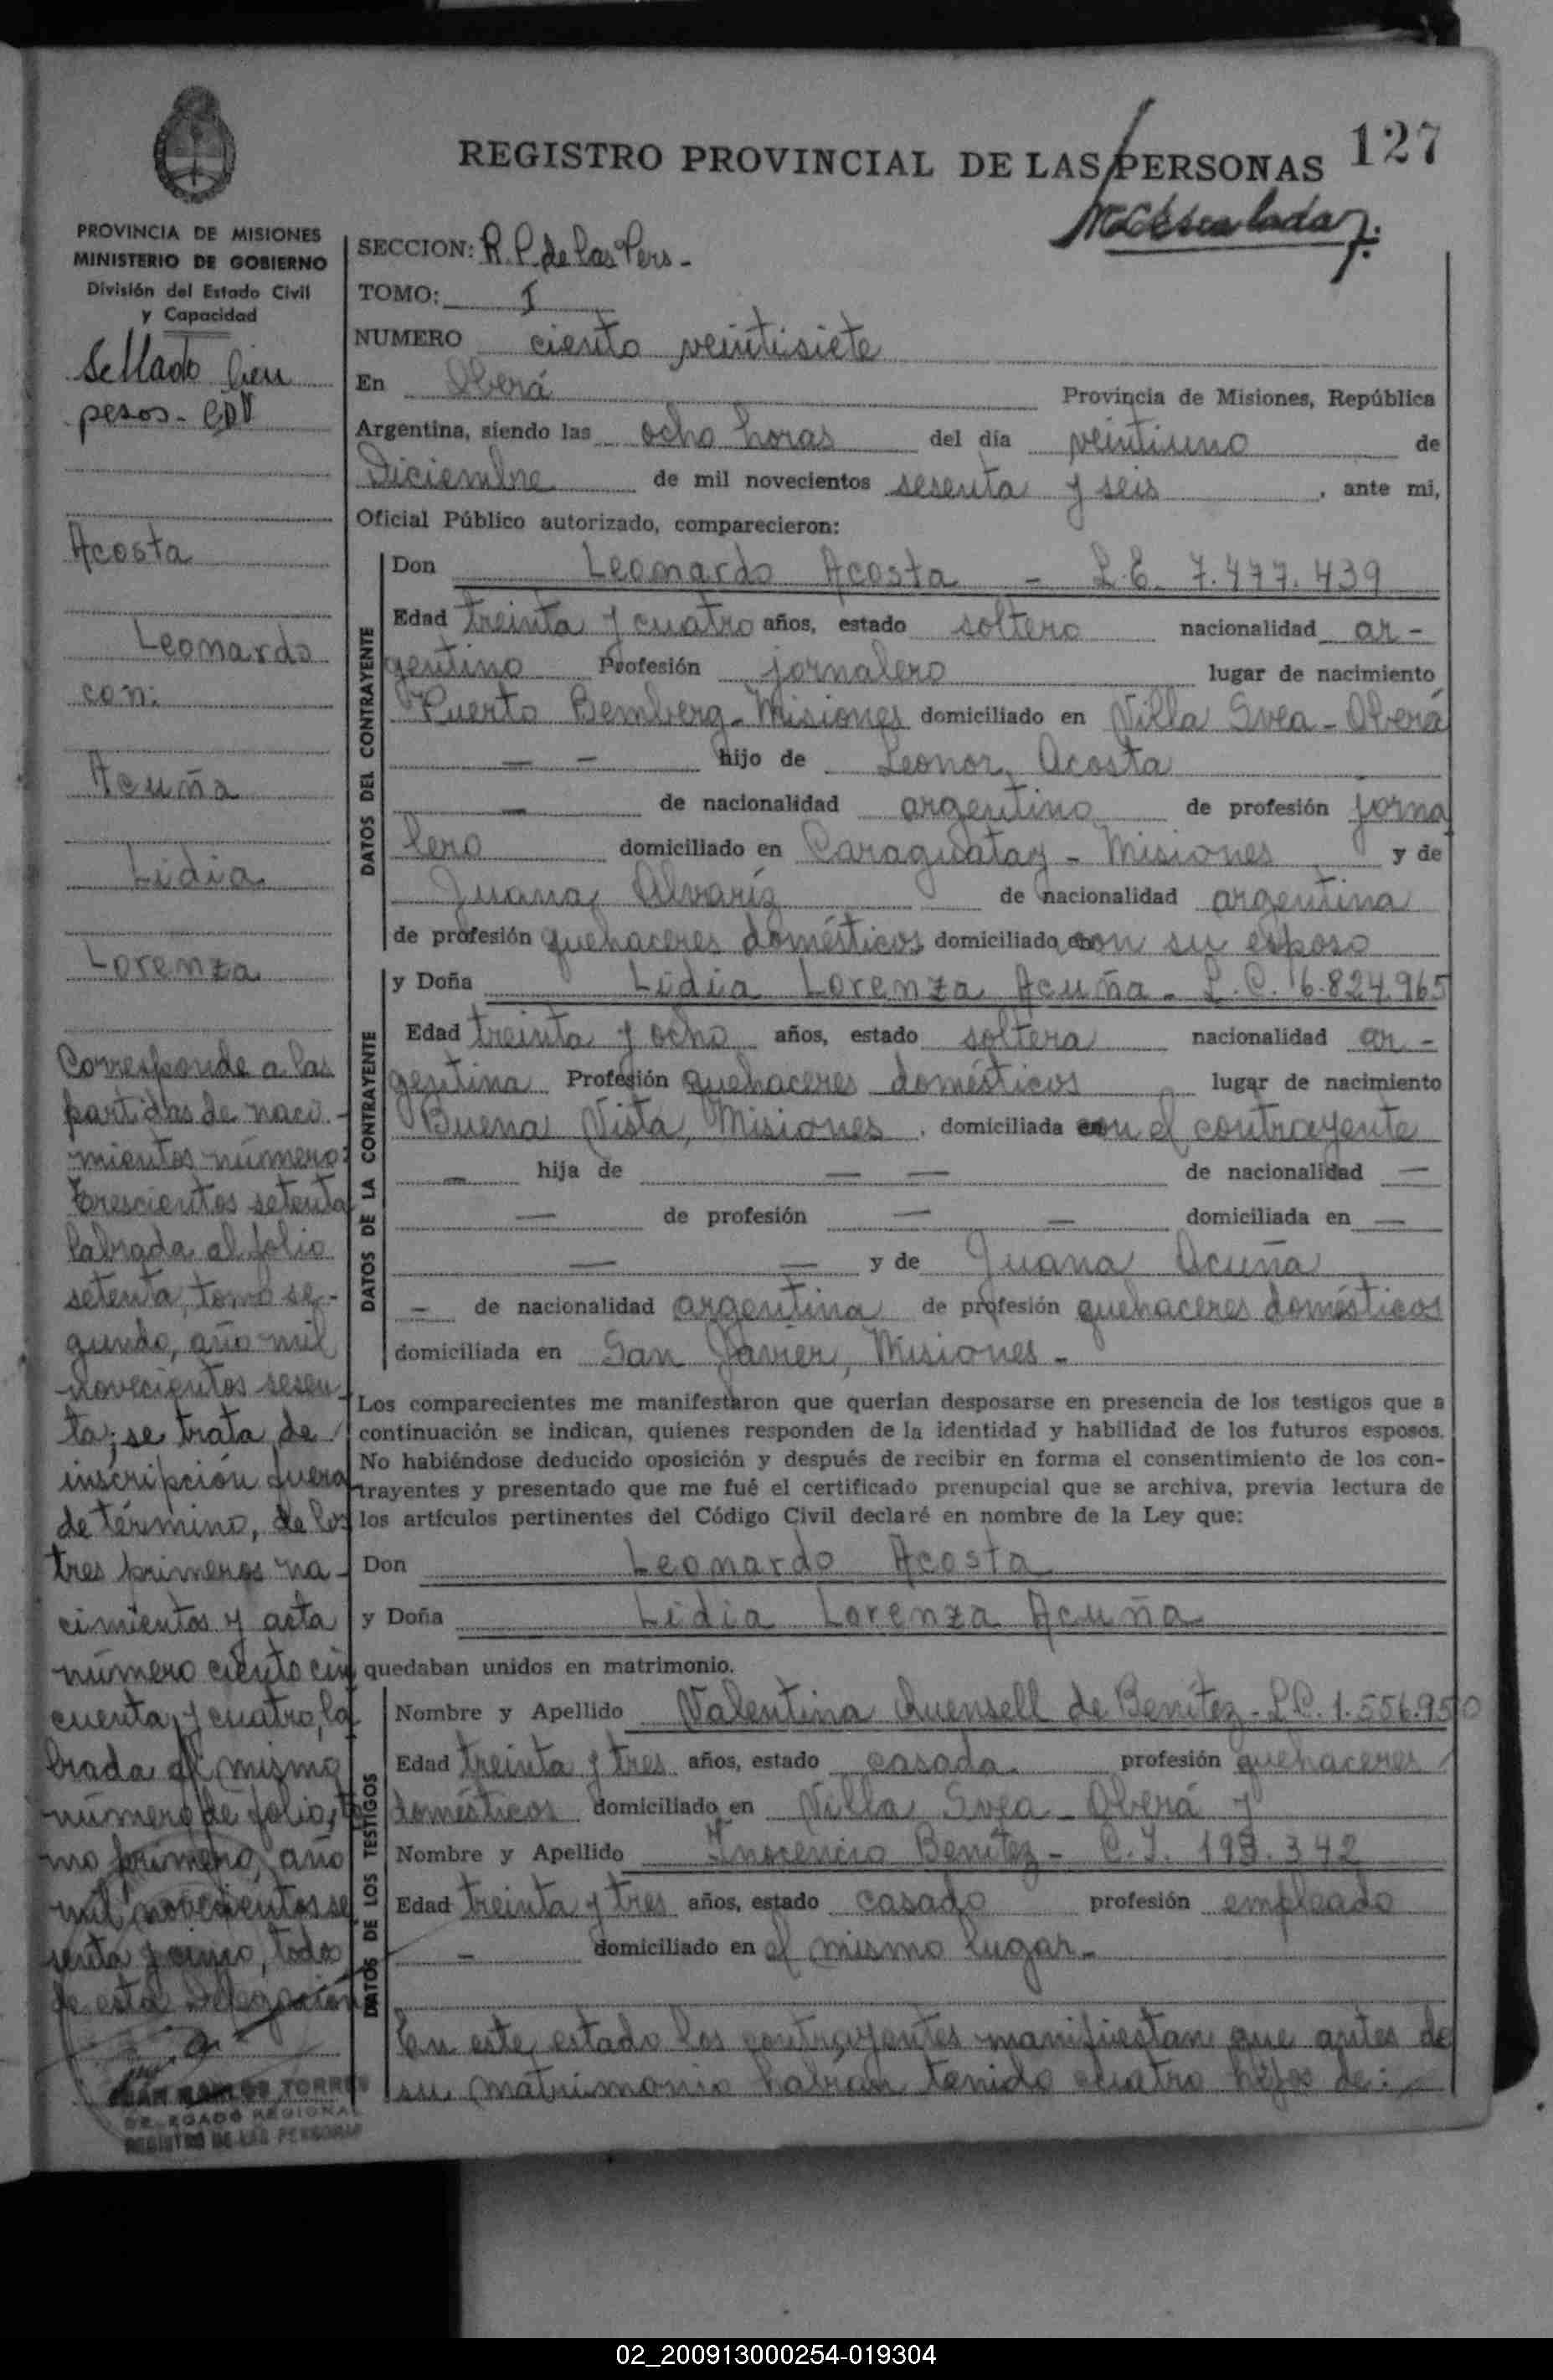 REGISTRO PROVINCIAL DE LAS PERSONAS 127
PROVINCIA DE MISIONES
MINISTERIO DE GOBIERNO
División del Estado Civil
y Capacidad
Sellado cien
pesos-
Acosta
Leonardo
con:
Acuña
Lidia
Lorenza
Corresponde a las
partidas de naci-
mientos número:
trescientos setenta
labrada al folio
setenta, tomo se-
gundo, año mil
novecientos sesen-
ta; se trata de
inscripción fuera
de término, de los
tres primeros na-
cimientos y acta
número ciento cin
cuenta y cuatro, la
brada al mismo
número de folio, to
mo primero, año
mil novecientos se
senta y cinco, todo
de esta Delegación
JUAN RAMON TORRES
DELEGADO REGIONAL
REGISTRO DE LAS PERSONAS
SECCION: R.P. de las Pers-
TOMO: I
NUMERO ciento veintisiete
En Oberá Provincia de Misiones, República
Argentina, siendo las ocho horas del día veintiuno de
Diciembre de mil novecientos sesenta y seis, ante mi,
Oficial Público autorizado, comparecieron:
DATOS DEL CONTRAYENTE
Don Leonardo Acosta - L.E. 7.477.439
Edad treinta y cuatro años, estado soltero nacionalidad ar-
gentino Profesión jornalero lugar de nacimiento
Puerto Bemberg-Misiones domiciliado en Villa Svea-Oberá
— — hijo de Leonor Acosta
— de nacionalidad argentino de profesión jorna
lero domiciliado en Caraguatay - Misiones y de
Juana Alvariz de nacionalidad argentina
de profesión quehaceres domésticos domiciliado con su esposo
DATOS DE LA CONTRAYENTE
y Doña Lidia Lorenza Acuña - L.C. 6.824.965
Edad treinta y ocho años, estado soltera nacionalidad ar-
gentina Profesión quehaceres domésticos lugar de nacimiento
Buena Vista, Misiones, domiciliada con el contrayente
— hija de — — de nacionalidad —
— de profesión — — domiciliada en —
— — y de Juana Acuña
— de nacionalidad argentina de profesión quehaceres domésticos
domiciliada en San Javier, Misiones -
Los comparecientes me manifestaron que querían desposarse en presencia de los testigos que a
continuación se indican, quienes responden de la identidad y habilidad de los futuros esposos.
No habiéndose deducido oposición y después de recibir en forma el consentimiento de los con-
trayentes y presentado que me fué el certificado prenupcial que se archiva, previa lectura de
los artículos pertinentes del Código Civil declaré en nombre de la Ley que:
Don Leonardo Acosta
y Doña Lidia Lorenza Acuña
quedaban unidos en matrimonio.
DATOS DE LOS TESTIGOS
Nombre y Apellido Valentina Quensell de Benítez - L.C. 1.556.950
Edad treinta y tres años, estado casada profesión quehaceres
domésticos domiciliado en Villa Svea - Oberá y
Nombre y Apellido Inocencio Benítez - C.I. 193.342
Edad treinta y tres años, estado casado profesión empleado
— domiciliado en el mismo lugar -
En este estado los contrayentes manifiestan que antes de
su matrimonio habían tenido cuatro hijos de:
02_200913000254-019304